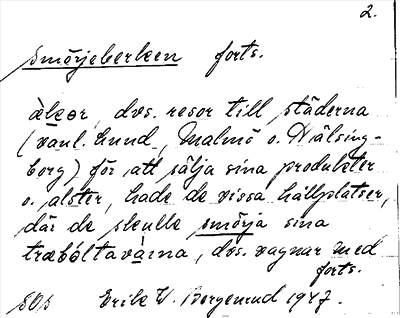 2.
smörjeberken forts.
àkor, dvs. resor till städerna
(vanl. Lund, Malmö o. Hälsing-
borg) för att sälja sina produkter
o. alster, hade de vissa hållplatser,
där de skulle smörja sina
træbóltavàrna, dvs. vagnar med
forts.
Erik W. Bergenrud 1947.